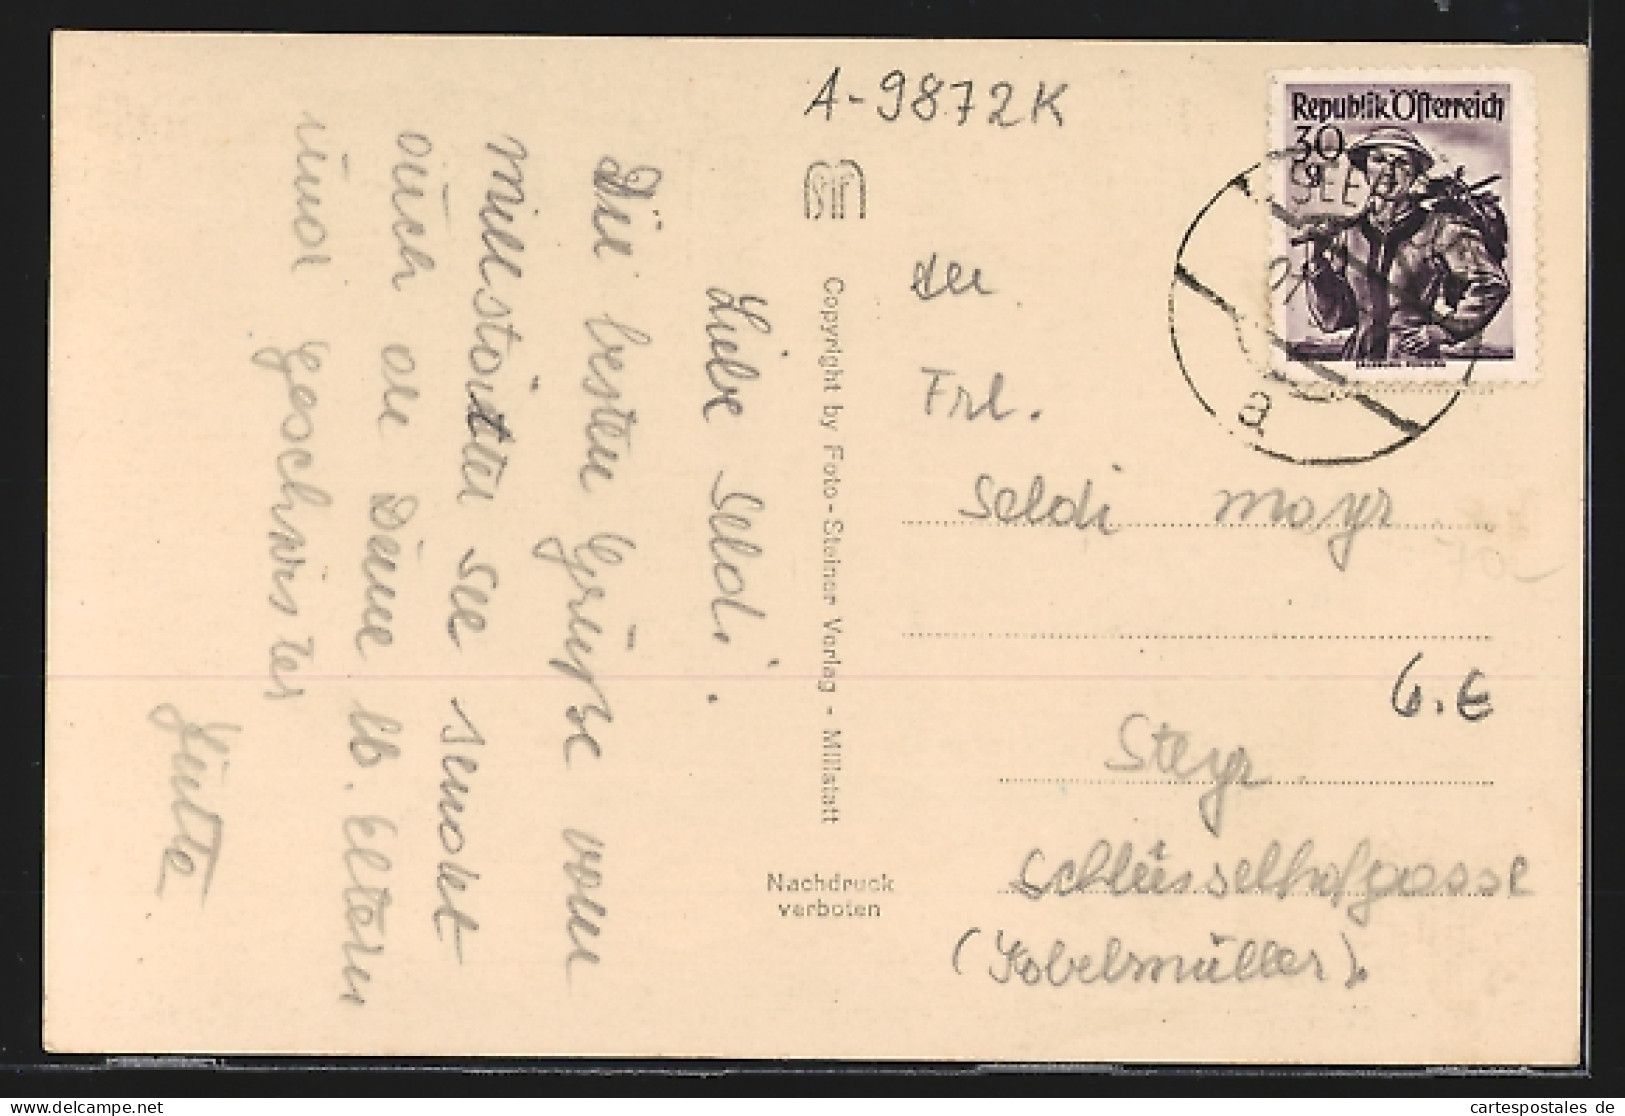 A-9872K
Republik Österreich
30
g
SEEB
a
Liebe Seldi.
Die besten Grüsse vom
Millstätter See sendet
auch an Deine lb. Eltern
und Geschwister
Jutta
Copyright by Foto-Steiner Verlag - Millstatt
Nachdruck
verboten
An
Frl.
Seldi Mayr
6.E
Steyr
Schlüsselhofgasse
(Kobelmüller).
cartespostales de